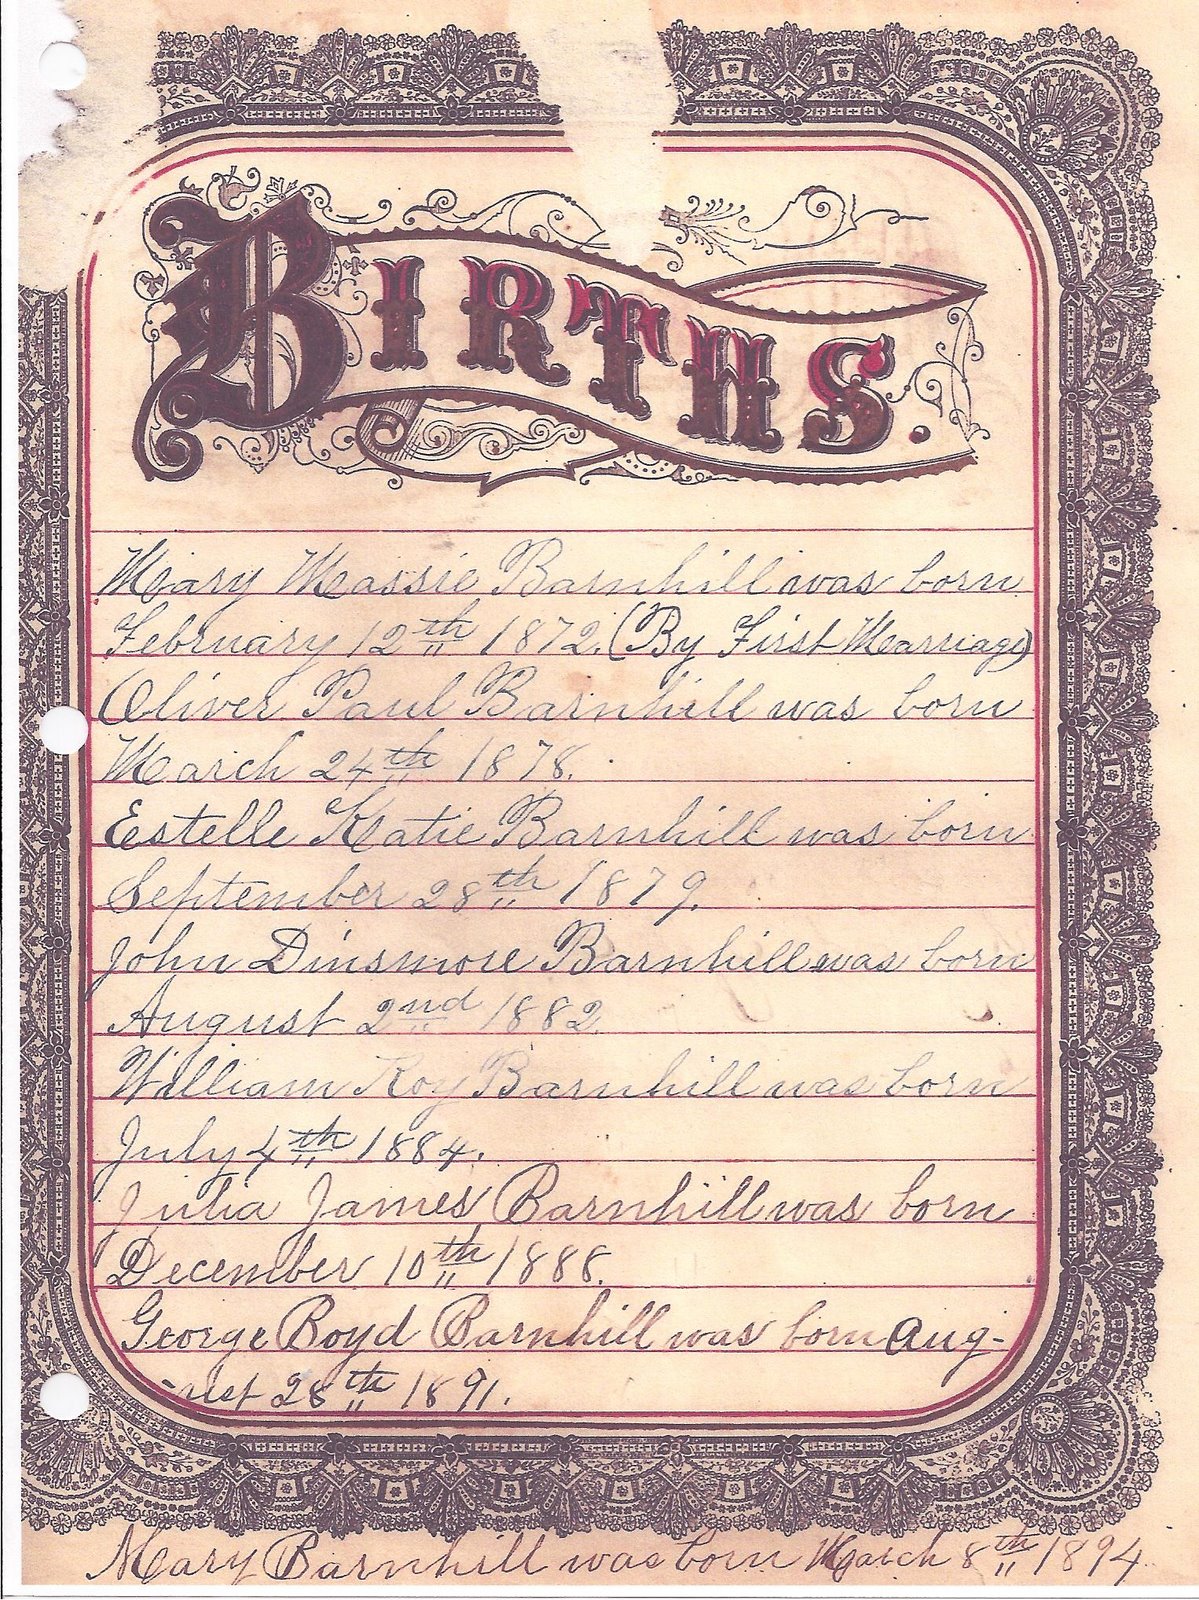 BIRTHS.
Mary Massie Barnhill was born
February 12th 1872. (By First Marriage)
Oliver Paul Barnhill was born
March 24th 1878.
Estelle Katie Barnhill was born
September 28th 1879.
John Dinsmore Barnhill was born
August 2nd 1882.
William Roy Barnhill was born
July 4th 1884.
Julia James Barnhill was born
December 10th 1888.
George Boyd Barnhill was born Aug-
-ust 28th 1891.
Mary Barnhill was born March 8th 1894.